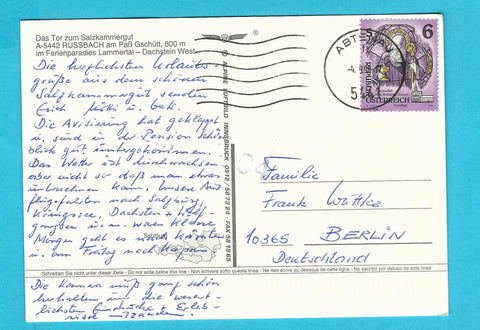 Das Tor zum Salzkammergut
A-5442 RUSSBACH am Paß Gschütt, 800 m
im Ferienparadies Lammertal – Dachstein West
Die herzlichsten Urlaubs-
grüße aus dem schönen
Salzkammergut senden
Euch u.
Die Avisierung hat geklappt
u. sind in der Pension Schön
blick gut untergekommen.
Das Wetter ist durchwachsen
aber nicht so daß man etwas
unternehmen kann. Unsere Aus
flüge führten nach Salzburg,
Königssee, Dachstein + Wolf-
gangsee u. m. waren
Morgen geht es nach Kärnten
u. am Freitag nach
Schreiben Sie nicht unter dieser Zeile - Do not write below this line - Non scrivere sotto questa linea - Ne rien écrire au dessous de cette ligne - No escribir por debajo de esta linea
Die Kamera muß ganz schön
herhalten um die wesent-
lichsten Eindrücke + Erleb-
nisse
ALPINE LUFTBILD INNSBRUCK 0512 / 58 73 24 - FAX 58 18 65
ABTENAU
6
REPUBLIK
ÖSTERREICH
Familie
Frank Wuttke
10365 BERLIN
Deutschland